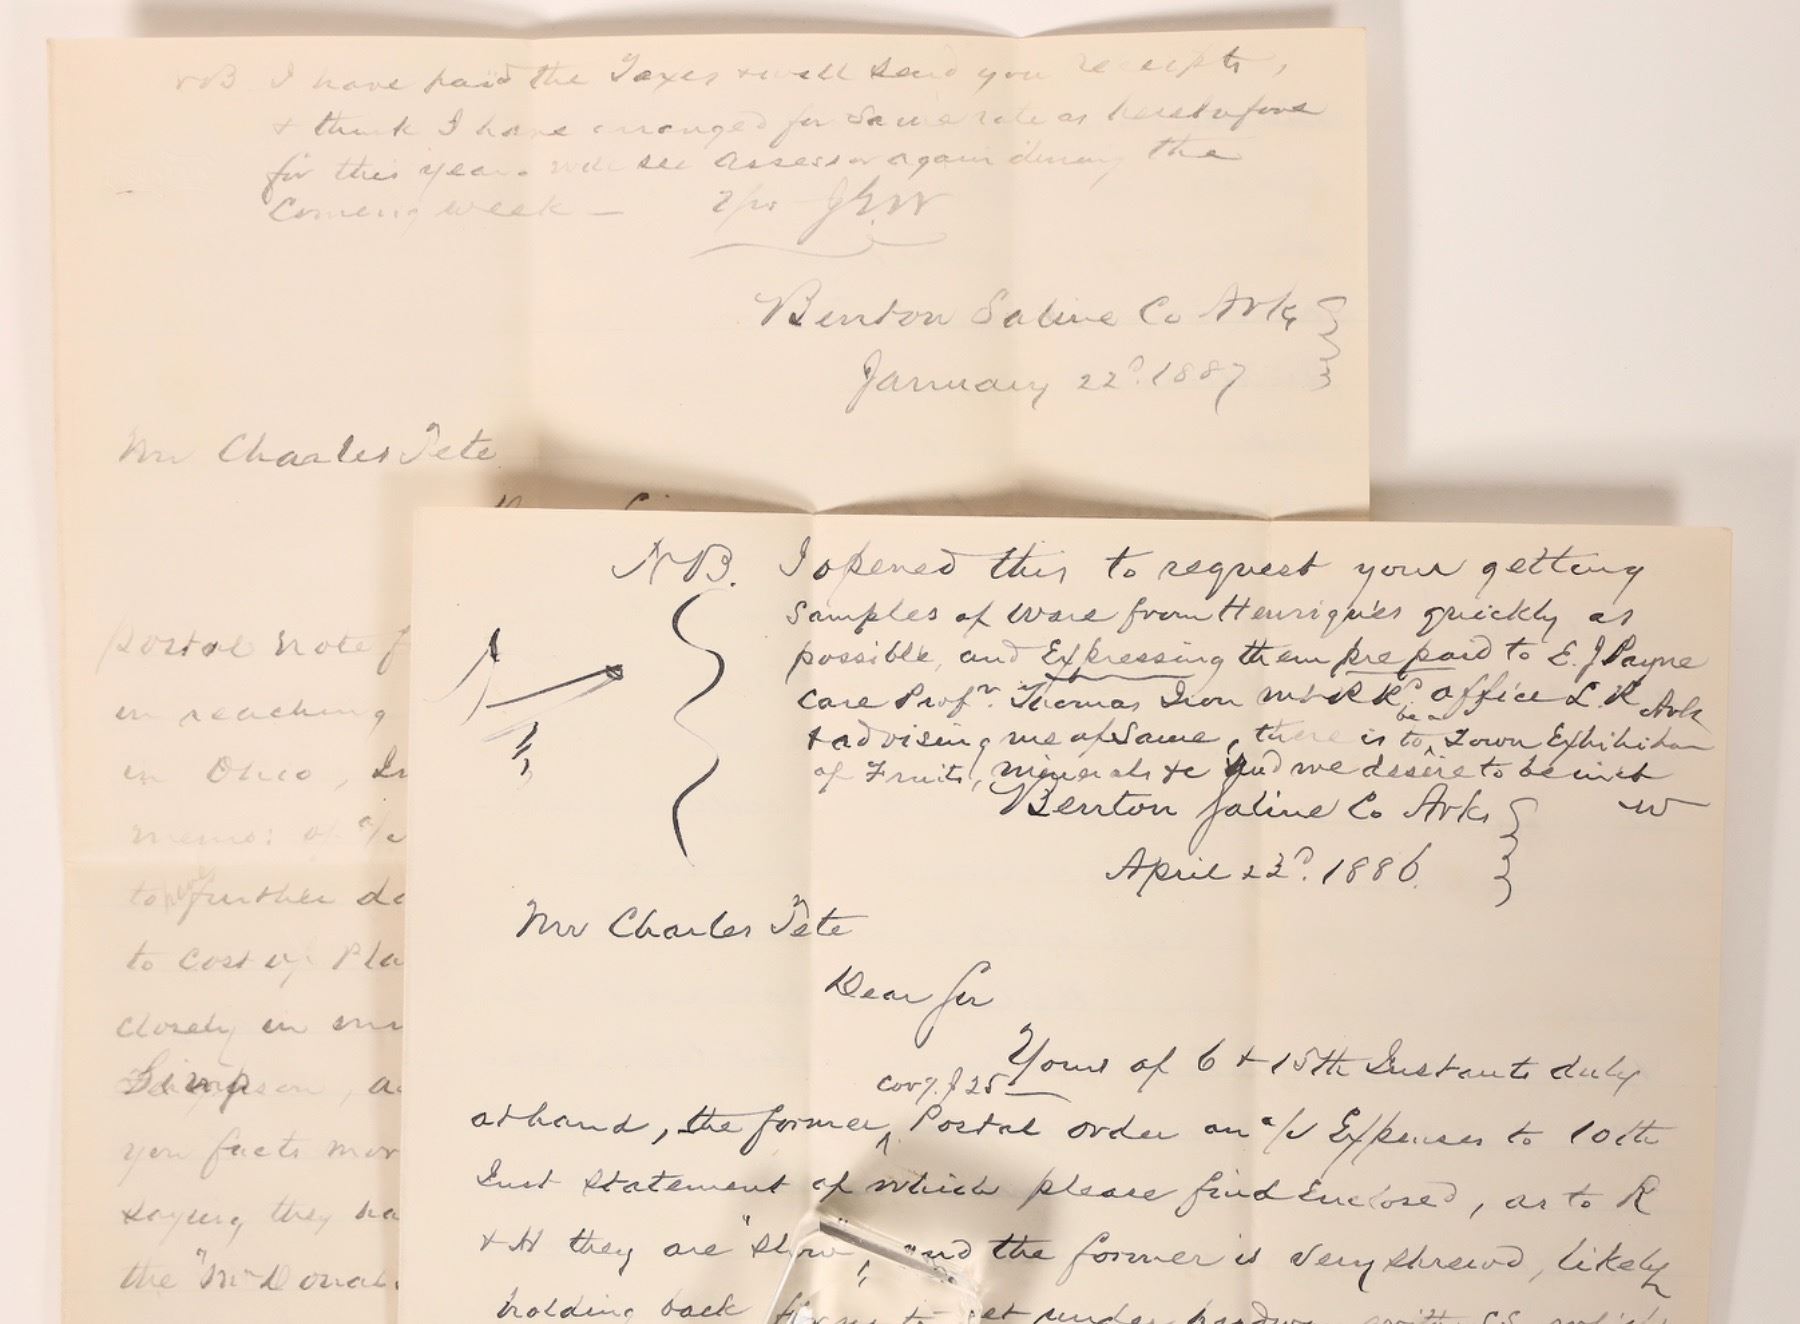 NB I have paid the Taxes & will send you receipts,
& think I have arranged for same rate as heretofore
for this year. will see assessor again during the
Coming week —
Benton Saline Co Arks
January 22d. 1887
Mr Charles Tete
Postal note f
in reaching
in Ohio,
memo: of a/c
to further
to cost of Pla
closely in
Simpson, a
you facts mor
saying they ha
the "McDonal
NB. I opened this to request your getting
samples of ware from Henriques quickly as
possible, and Expressing them prepaid to E. J Payne
care Profr. Thomas Iron Mt R Rd office L. R Ark
& advising me of same, there is to be a Town Exhibition
of Fruits, minerals &c and we desire to be in it
W
Benton Saline Co Arks
April 22d. 1886.
Mr Charles Tete
Dear Sir
Yours of 6 & 15th Instants duly
covg. $25
at hand, the former Postal order on a/c Expenses to 10th
Inst statement of which please find Enclosed, as to R
& H they are "slow" and the former is very shrewd, likely
holding back